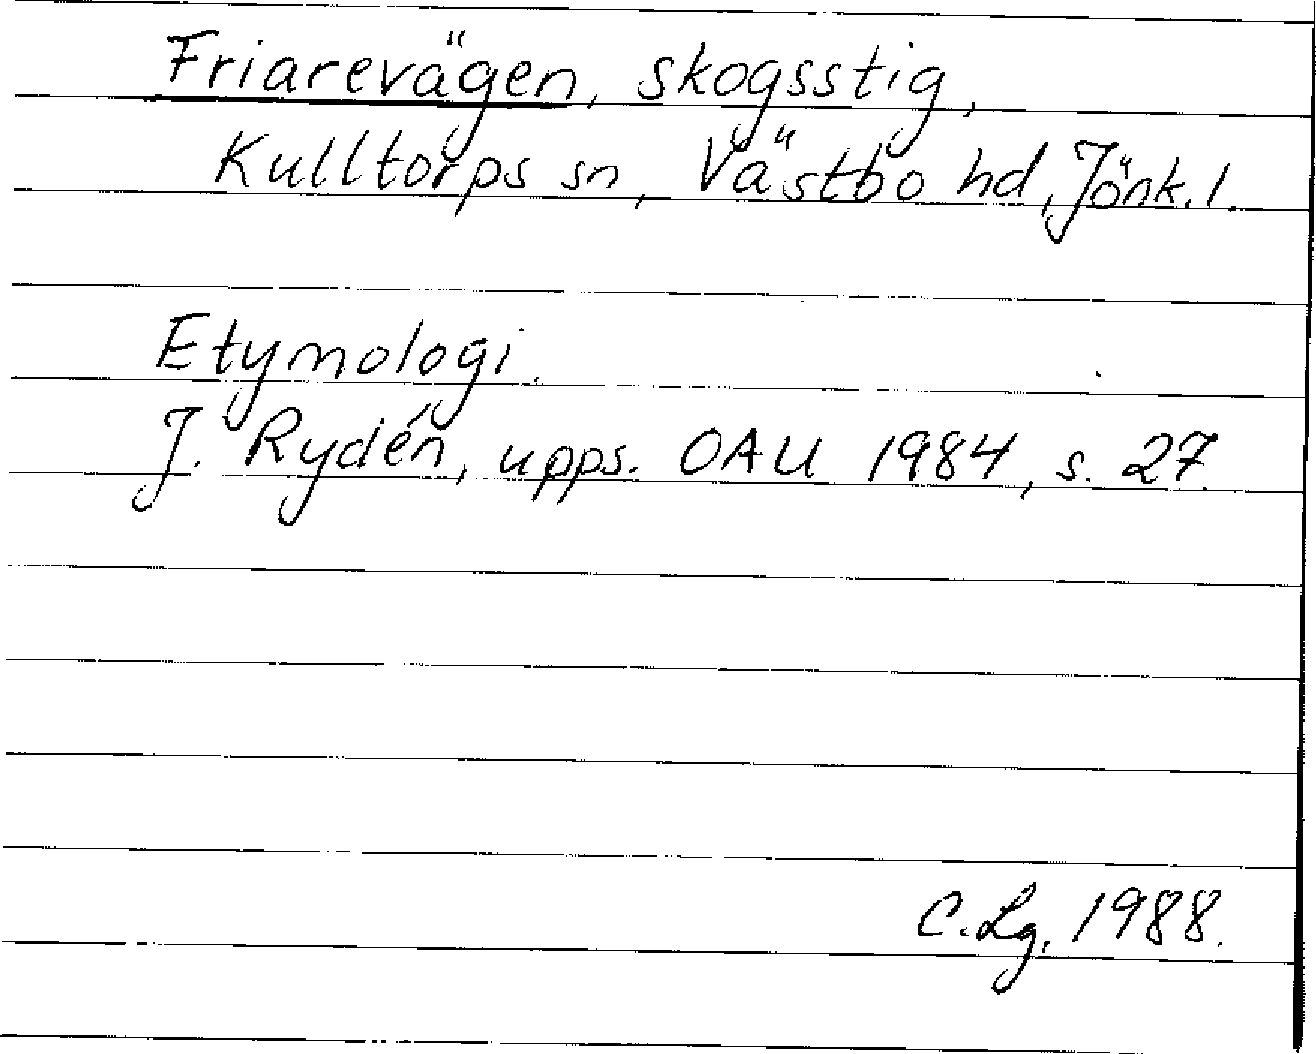 Friarevägen, skogsstig,
Kulltorps sn, Västbo hd, Jönk. l.
Etymologi.
J. Rydén, upps. OAU 1984, s. 27.
C. Lg, 1988.